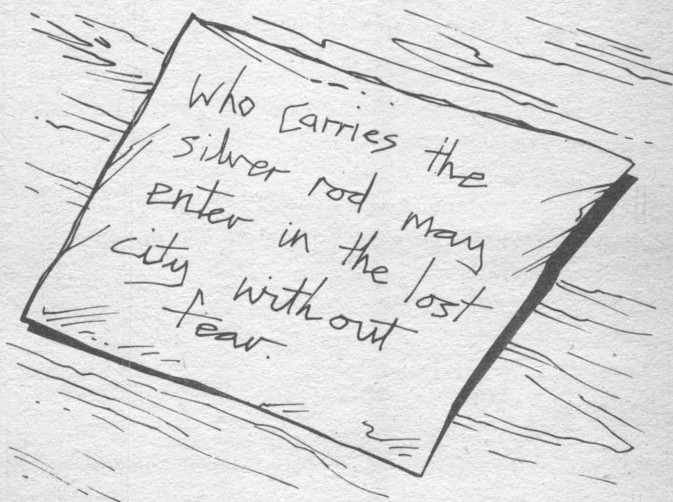 Who carries the
silver rod may
enter in the lost
city without
fear.